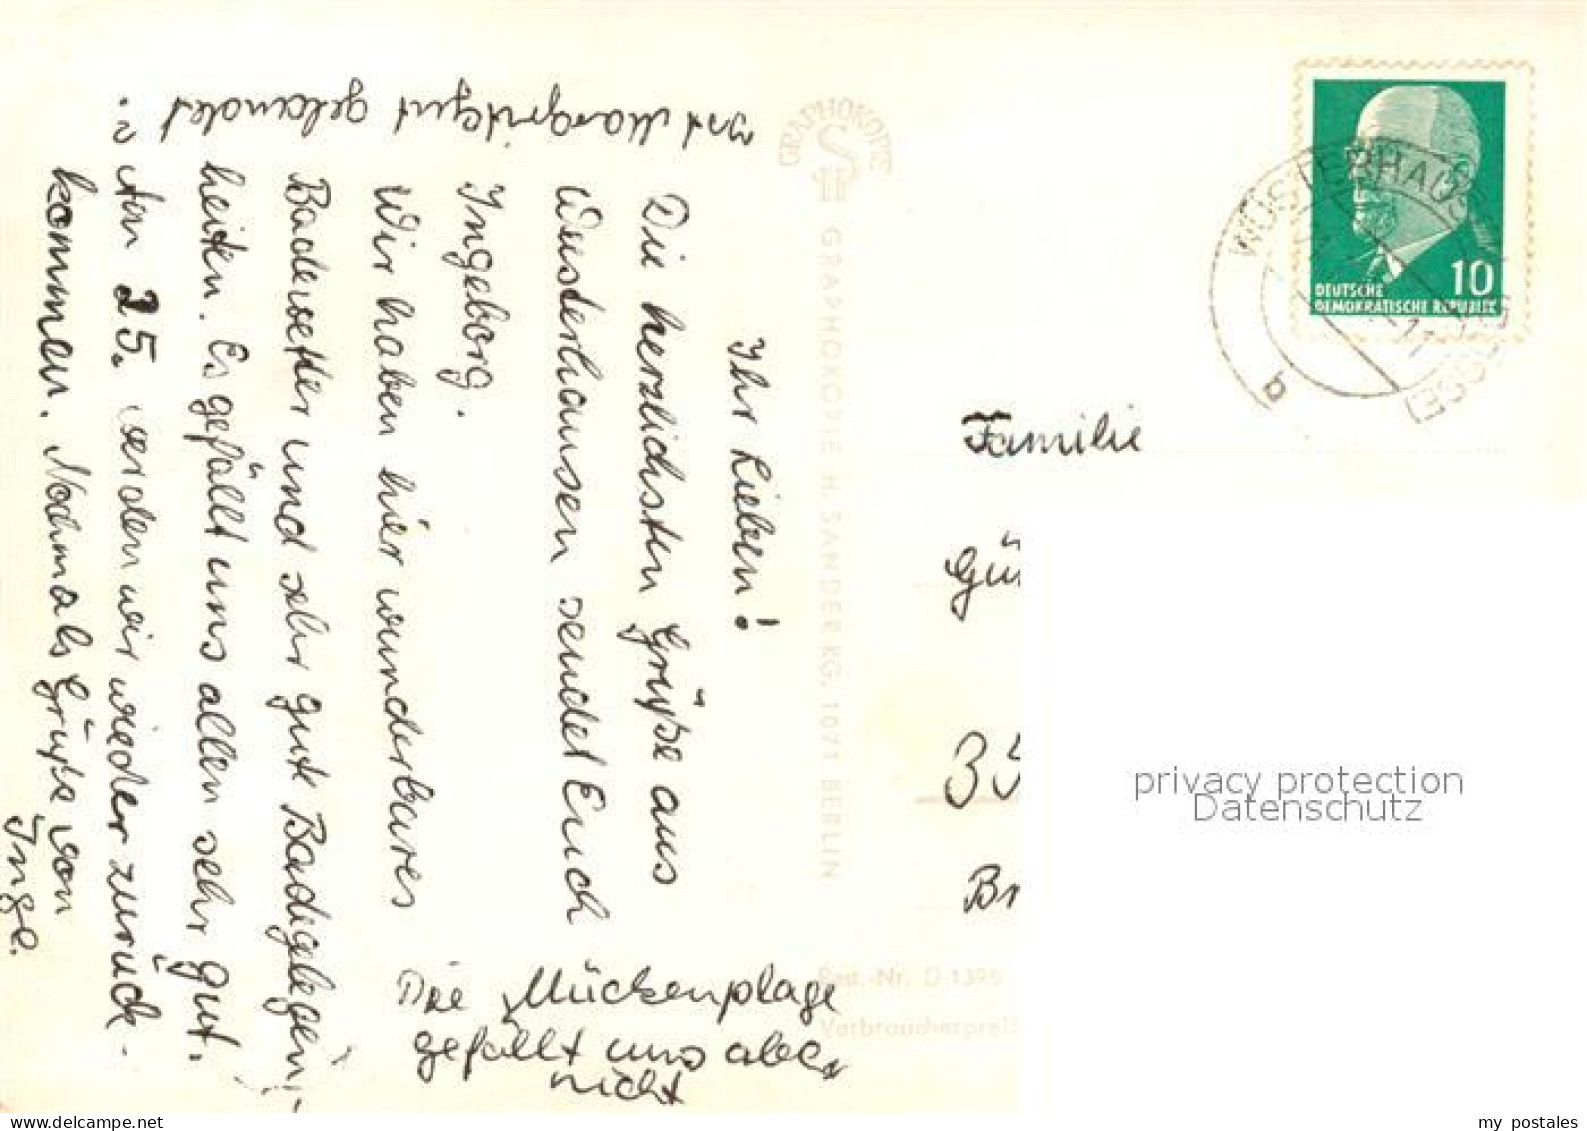 Ihr Lieben!
Die herzlichsten Grüße aus
Wusterhausen sendet Euch
Ingeborg.
Wir haben hier wunderbares
Badewetter und sehr gute Badegelegen-
heiten. Es gefällt uns allen sehr gut.
Am 25. werden wir wieder zurück-
kommen. Nochmals Grüße von
Inge.
Die Mückenplage
gefällt uns aber
nicht
gut gelandet
GRAPHOKOPIE
GRAPHOKOPIE H. SANDER KG. 1071 BERLIN
Best.-Nr. D 1395
Verbraucherpreis
10
DEUTSCHE
DEMOKRATISCHE REPUBLIK
WUSTERHAUSEN
b
Familie
Gü
35
Br
privacy protection
Datenschutz
www.delcampe.net
my_postales